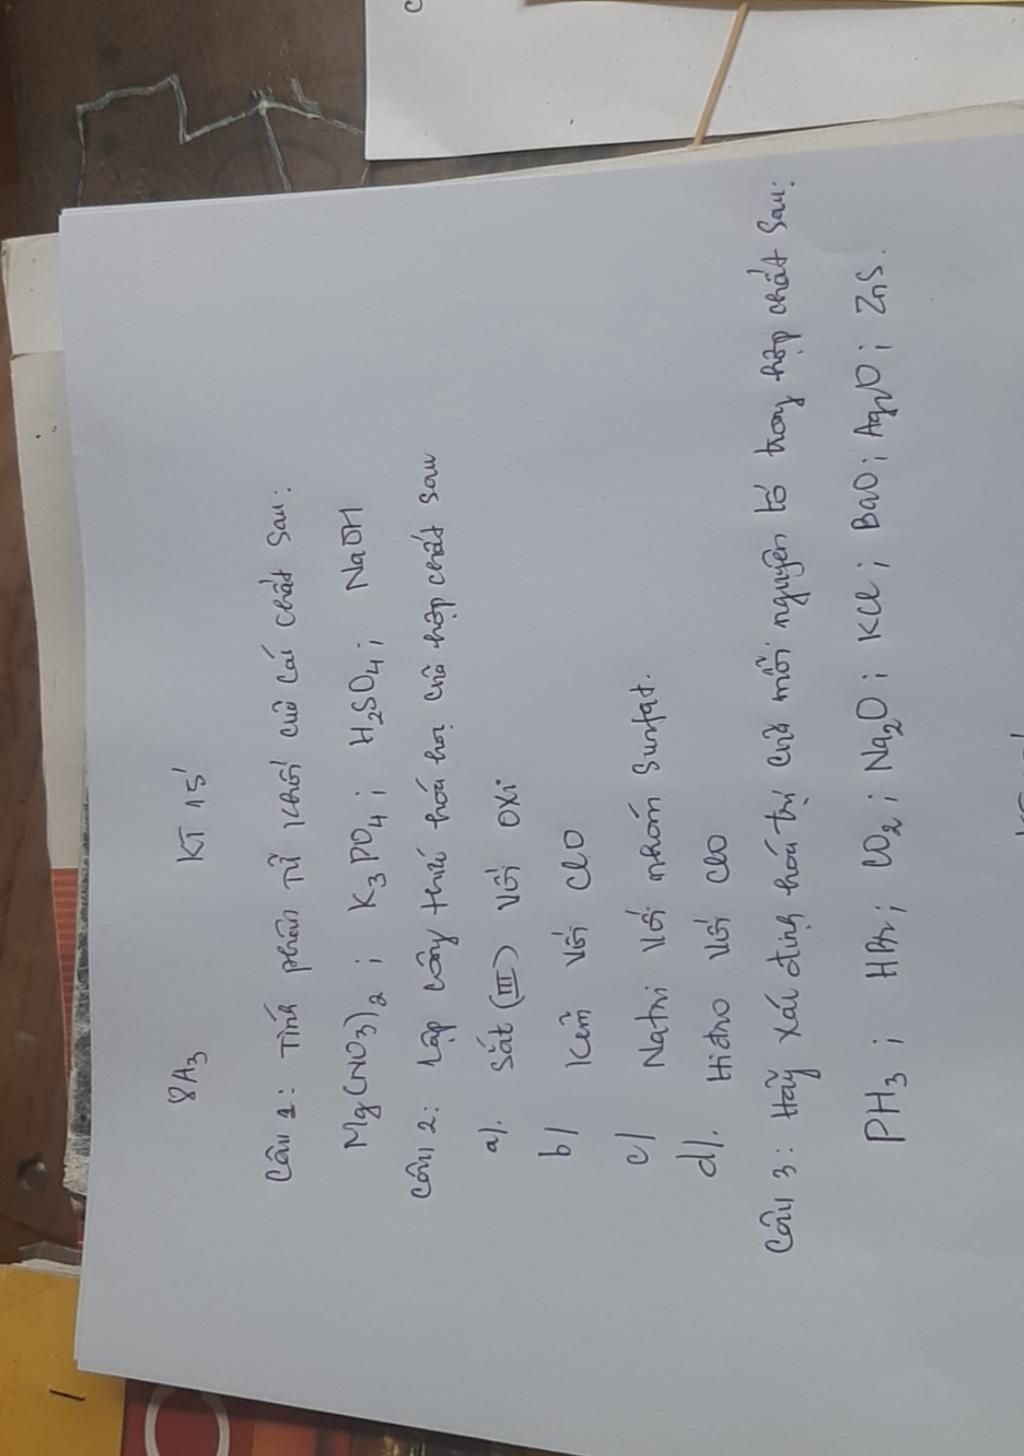 8A3 KT 15'
Câu 1: Tính phân tử khối của các chất sau:
Mg(NO3)2; K3PO4; H2SO4; NaOH
Câu 2: Lập công thức hóa học của hợp chất sau
a). Sắt (III) với Oxi
b) Kẽm với Clo
c) Natri với nhóm Sunfat.
d). Hiđro với Clo
Câu 3: Hãy xác định hóa trị của mỗi nguyên tố trong hợp chất sau:
PH3; HBr; CO2; Na2O; KCl; BaO; Ag2O; ZnS.